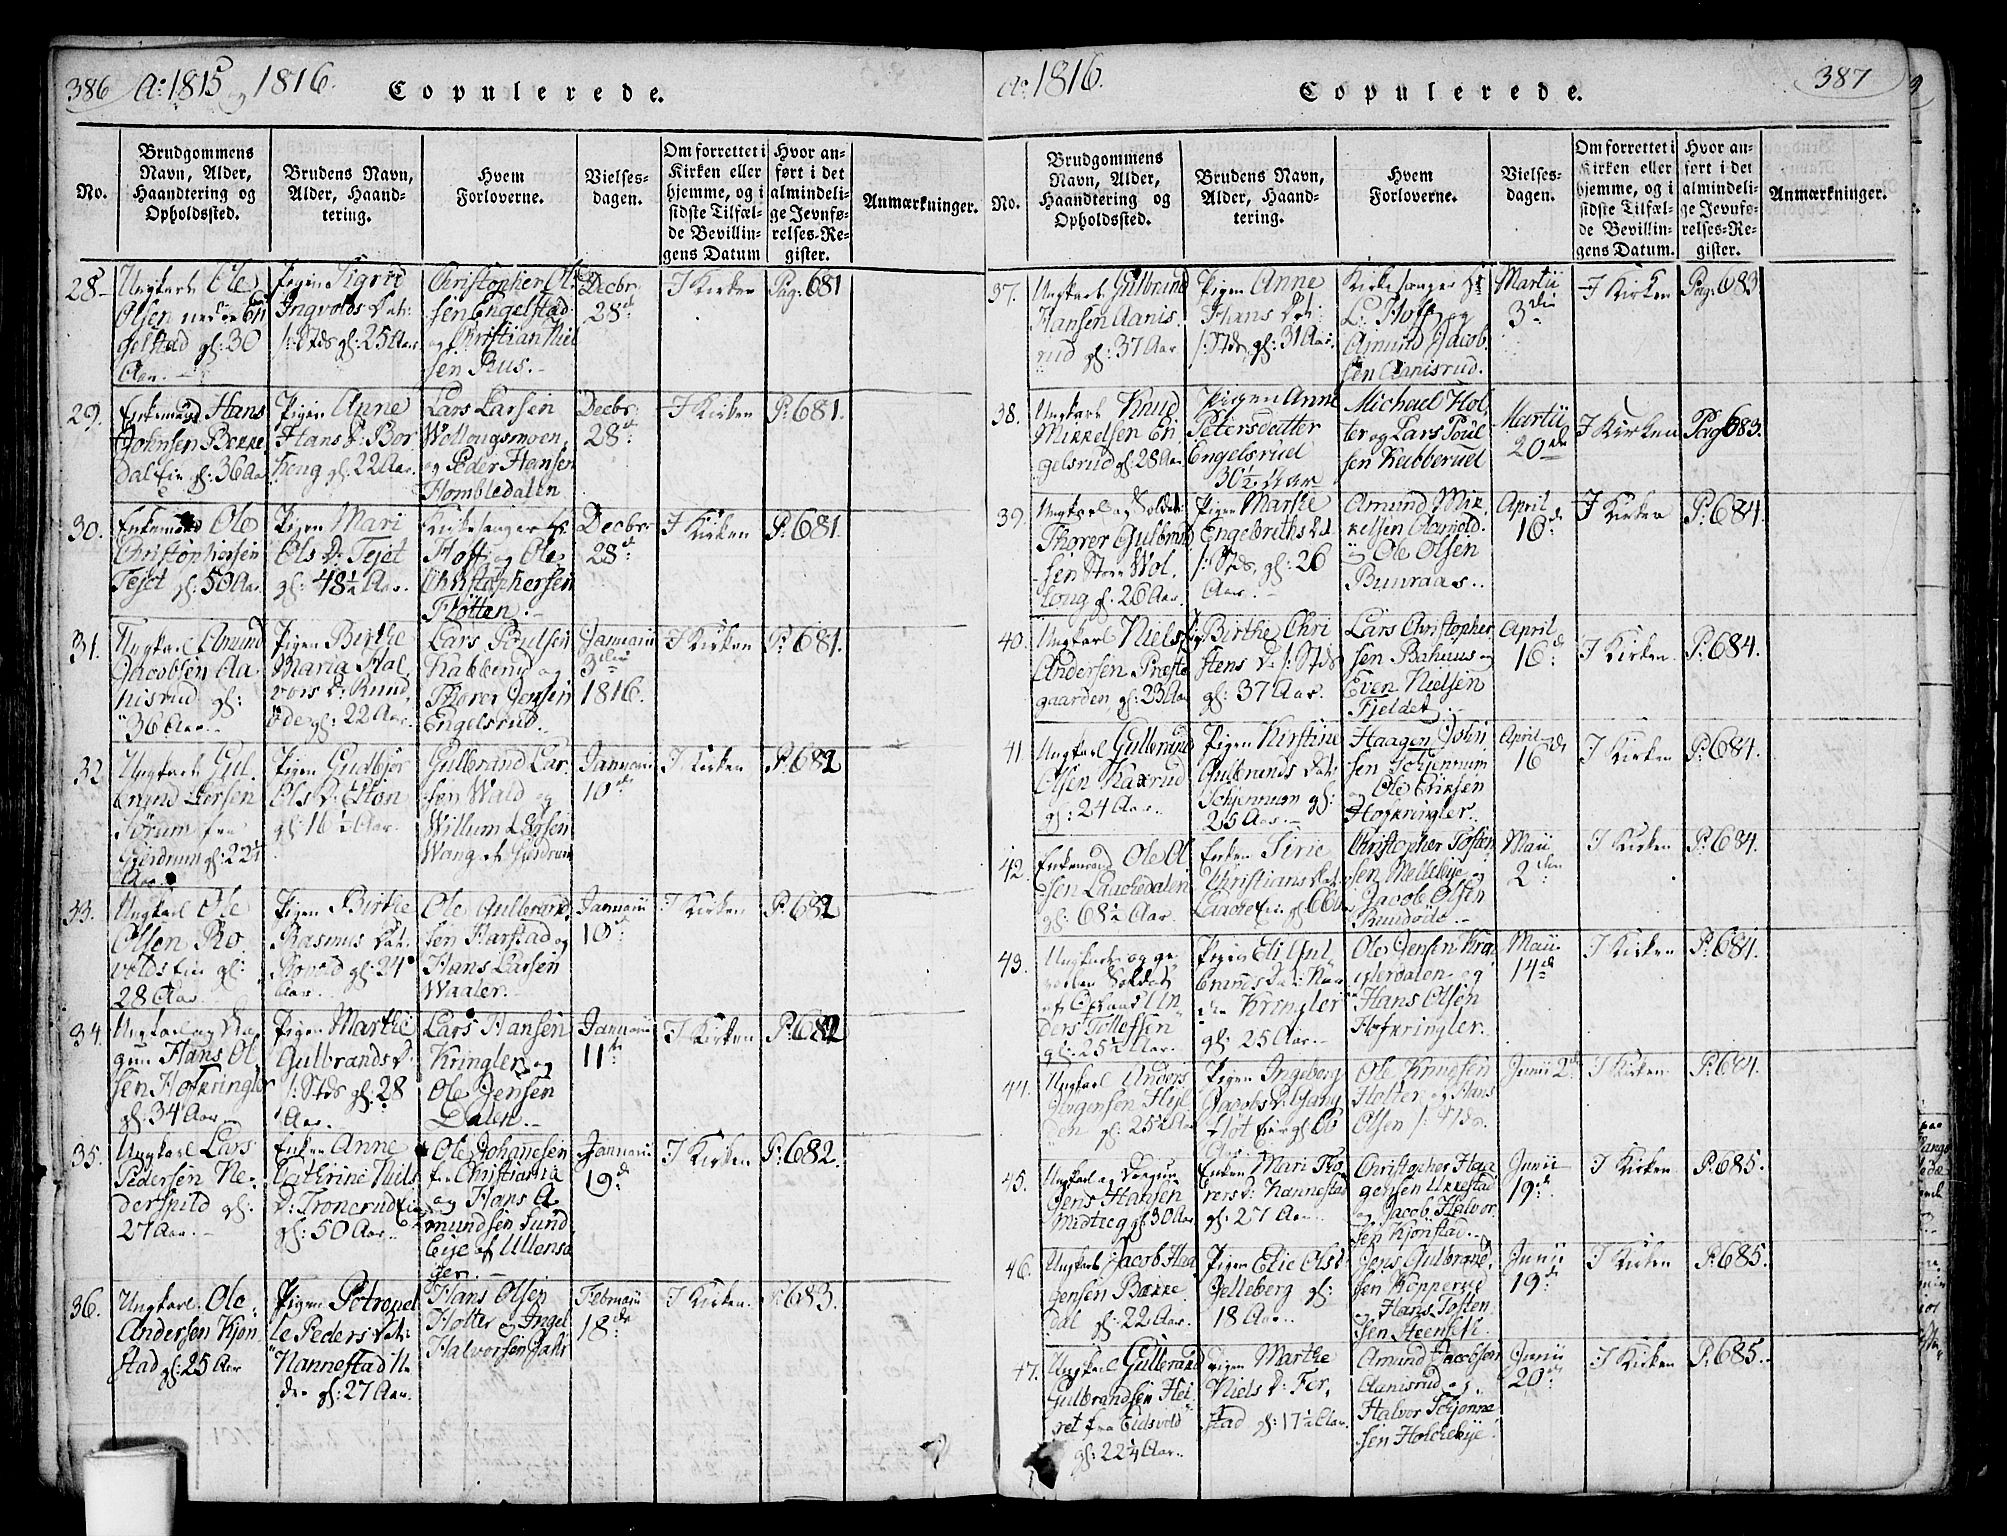 386 Ao: 1815 og 1816.
Copulerede.
No.
Brudgommens
Navn, Alder,
Haandtering og
Opholdssted.
Brudens Navn,
Alder, Haand-
tering.
Hvem
Forloverne.
Vielses-
dagen.
Om forrettet i
Kirken eller
hjemme, og i
sidste Tilfæl-
de Bevillin-
gens Datum
Hvor an-
ført i det
almindeli-
ge Jevnfø-
relses-Re-
gister.
Anmærkninger.
28
Ungkarl Ole
Olsen nedre En
gelstad gl: 30
Aar.
Pigen Sigrid
Ingvolds Dat:
/: Stds gl: 25 Aar
Christopher Ol
sen Engelstad
og Christian Niel
sen Rus.
Decbr:
28de
I Kirken
Pag: 681
29.
Enkemand Hans
Johnsen Bekke
Dal Eie gl: 36 Aar
Pigen Anne
Hans D: Bor
houg gl: 22 Aar.
Lars Larsen
Wollougsmoen
og Peder Hansen
Hombledalen
Decbr:
28de
I Kirken
P: 681.
30.
Enkemand Ole
Christophersen
Tejet gl: 50 Aar
Pigen Mari
Ols D: Tejet
gl: 48½ Aar.
Kirkesanger Hr.
Hoff og Ole
Christophersen
Fløtten.
Decbr:
28de
I Kirken
P: 681.
31.
Ungkarl Amund
Jacobsen Aa-
nisrud gl:
36 Aar.
Pigen Birthe
Maria Hal
vors D: Rund
øde gl: 22 Aar.
Lars Poulsen
Kabberud og
Thorer Jensen
Engelsrud.
Januarii
5te
1816.
I Kirken
P: 681.
32
Ungkarl Gul
brand Larsen
Sørum fra
Gjerdrum gl: 22½
Aar.
Pigen Gudbjør
Ols D: Elton
gl: 16½ Aar.
Gulbrand Lar
sen Wald og
Willum Larsen
Wang af Gjerdrum
Januarii
10de
I Kirken
P: 682
33.
Ungkarl Ole
Olsen Ro
volds Eie gl:
28 Aar.
Pigen Birthe
Rasmus Dat:
Rovold gl: 24
Aar.
Ole Gulbrand
sen Harstad og
Hans Larsen
Waaler.
Januarii
10de
I Kirken
P: 682
34.
Ungkarl og Dra
gun Hans Ol
sen Hofkringler
gl: 34 Aar
Pigen Marthe
Gulbrands D:
/: Stds gl: 28
Aar.
Lars Hansen
Kringler og
Ole Jensen
Dalen.
Januarii
11te
I Kirken
P: 682
35.
Ungkarl Lars
Pedersen Ne-
derspild gl:
27 Aar.
Enken Anne
Cathrine Niels
D: Troncrud Eie
gl: 50 Aar.
Ole Johanesen
fra Christiania
og Hans A
mundsen Sund
bye af Ullensa
ger.
Januarii
19de
I Kirken
P: 682.
36.
Ungkarl Ole
Andersen Kjøn
stad gl: 25 Aar
Pigen Petronel
le Peders Dat:
Nannestad Ne
dre gl: 27 Aar.
Hans Olsen
Holter og Ingel
Halvorsen
Februarii
18de
I Kirken.
P: 683.
Ao: 1816.
Copulerede.
387
No.
Brudgommens
Navn, Alder,
Haandtering og
Opholdssted.
Brudens Navn,
Alder, Haand-
tering.
Hvem
Forloverne.
Vielses-
dagen.
Om forrettet i
Kirken eller
hjemme, og i
sidste Tilfæl-
de Bevillin-
gens Datum.
Hvor an-
ført i det
almindeli-
ge Jevnfø-
relses-Re-
gister.
Anmærkninger.
37.
Ungkarl Gulbrand
Hansen Aanis
rud gl: 37 Aar
Pigen Anne
Hans Dat:
/: Stds, gl: 31 Aar.
Kirkesanger Hr:
L: Hoff og
Amund Jacob
sen Aanisrud.
Martii
3die
I Kirken
Pag: 683
38.
Ungkarl Knud
Mikkelsen En
gelsrud gl: 28 Aar
Pigen Anne
Petersdatter
Engelsrud
30½ Aar
Michael Hol
ter og Lars Poul
sen Kabberud
Martii
20de
I Kirken
Pag 683.
39.
Ungkarl og Soldat
Thorer Gulbrand
sen Store Wol
loug gl: 26 Aar.
Pigen Marthe
Engebreths Dat
/: Stds, gl: 26
Aar.
Amund Mik
kelsen Aamold
og Ole Olsen
Bunraas.
April
10de
I Kirken
P: 684.
40.
Ungkarl Niels
Andersen Præste
gaarden gl: 23 Aar
Pig Birthe Chri
stens D: /: Stds
gl: 37 Aar.
Lars Christopher
sen Bahuus og
Even Nielsen
Fjeldet.
April
16de
I Kirken.
P: 684.
41
Ungkarl Gulbrand
Olsen Kaxrud
gl: 24 Aar.
Pigen Kirstine
Gulbrands Dat:
Schjennum gl:
25 Aar.
Haagen John
sen Schjennum
og Ole Eriksen
Hofkringler.
April
16de
I Kirken
P: 684.
42.
Enkemand Ole Ol
sen Laachedalen
gl: 68½ Aar.
Enken Sirie
Christians Dat:
Laache Eie gl: 60
Christopher Tosten
sen Mellebye og
Jacob Olsen
Rundøde
Maii
2den
I Kirken
P: 684.
43.
Ungkarl og ge-
vorben Soldat
af Opland An
ders Tollefsen
gl: 25½ Aar.
Pigen Eli Gul
brands Dat: Ne
dre Kringler
gl: 25 Aar.
Ole Jensen Kra
gerdalen og
Hans Olsen
Hofkringler.
Maii
14de
I Kirken
P: 684.
44.
Ungkarl Anders
Jørgensen Hyl
den gl: 25½ Aar
Pigen Ingeborg
Jacobs D:
Fløt Eie gl: 60
Aar.
Ole Knudsen
Holter og Hans
Olsen /: Stds.
Junii 2den
I Kirken
P: 684.
45.
Ungkarl og Dragun
Jens Hansen
Midtieg gl: 30 Aar
Enken Mari Tho
rers D: Nannestad
gl: 27 Aar.
Christopher Haa
gensen Ukkestad
og Jacob Halvor
sen Kjønstad.
Junii
19de
I Kirken
P: 685.
46.
Ungkarl Jacob Haa
gensen Bække
Dal gl: 22 Aar.
Pigen Elie Ols D
Jelleberg gl:
18 Aar.
Jens Gulbrand
sen Kopperud
og Hans Tosten
sen Steenseth.
Junii
19de
I Kirken
P: 685.
47.
Ungkarl Gulbrand
Gulbrandsen Hei
ret fra Eidsvold
gl: 22¼ Aar.
Pigen Marthe
Niels D: Fer
stad gl: 17½ Aar.
Amund Jacobsen
Aanisrud og
Halvor Schjønne
sen Holckebye.
Junii
20de
I Kirken
P: 685.